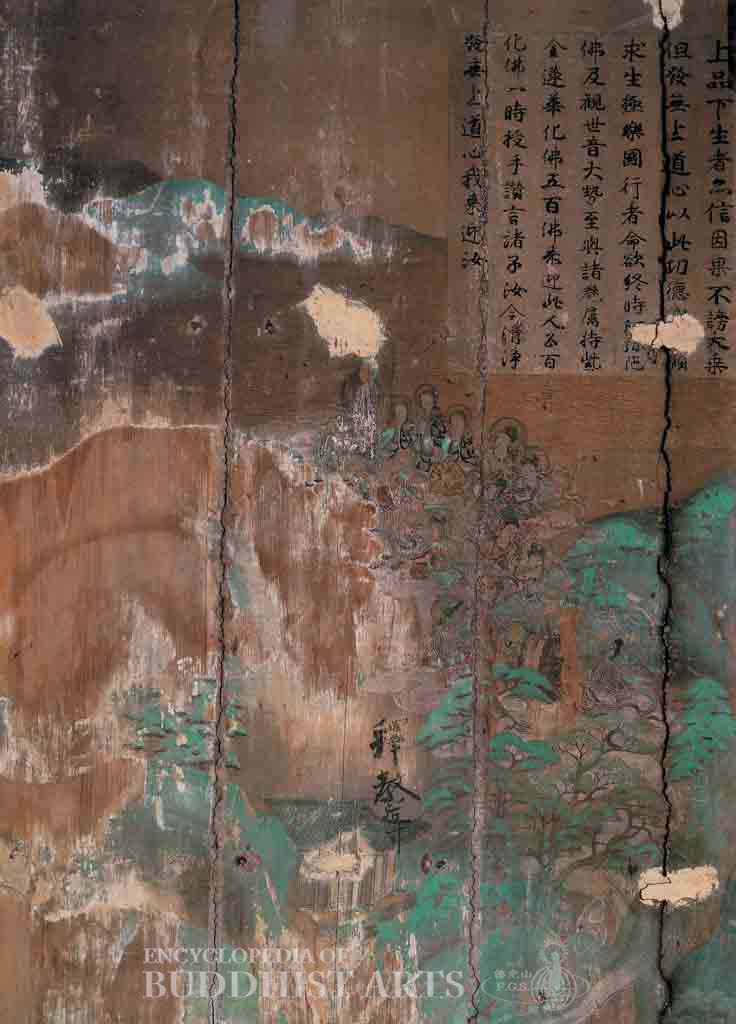 上品下生者亦信因果不謗大乗
但發無上道心以此功德願
求生極樂國行者命欲終時
佛及觀世音大勢至與諸眷属持紫
金蓮華化佛五百佛来迎此人五百
化佛一時授手讃言諸子汝今清浄
發無上道心我来迎汝
釋教
ENCYCLOPEDIA OF
BUDDHIST ARTS
佛光山
F.G.S.